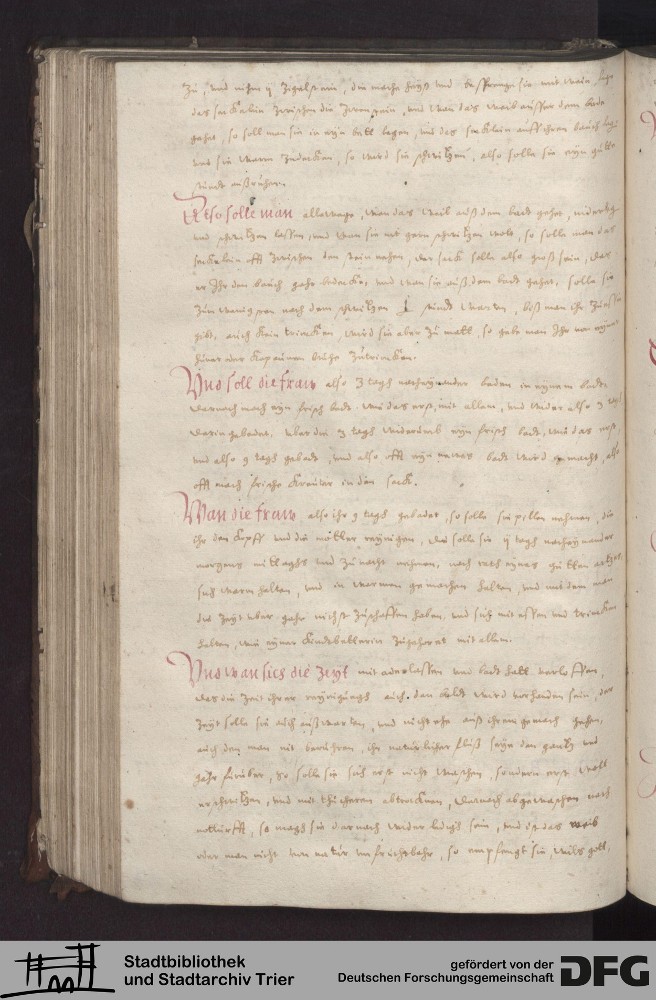 zu, und nihm ij Zigelstein, die mache heyß und besprenge sie mit wein, lege
das secklein zwischen die zwen stein, und wan das weib ausser dem bade
gehet, so soll man sie in eyn bett legen, und das secklein auff ihren bauch
und sie warm zudecken, so wird sie schwitzen, also solle sie eyn gutte
stundt außruhen.
Also solle man allewege, wan das weib auß dem badt gehet, niderlegen
und schwitzen lassen, und wan sie nit gern schwitzen wolt, so solle man das
secklein offt zwischen den stein nehen, der sack solle also groß sein, das
er ihr den bauch gahr bedecke, und wan sie auß dem badt gehet, solle sie
zum wenigsten nach dem schwitzen 1 stundt warten, biß man ihr zu essen
gibt, auch kein trincken, wird sie aber zu matt, so gebe man ihr von eyner
huner oder kopaunen bruhe zu trincken.
Und soll die fraw also 3 tagh nacheynander baden in eynem badt
darnach mach eyn frisch badt wie das erst, mit allem, und wider also 3 tagh
darin gebadet, uber die 3 tagh widerumb eyn frisch badt, wie das erst,
und also 9 tagh gebadt, und also offt eyn newes badt wird gemacht, also
offt mach frische kreuter in den sack.
Wan die fraw also ihr 9 tagh gebadet, so solle sie pillen nehmen, die
ihr den kopff und die mutter reynigen, die solle sie ij tagh nacheynander
morgens mittaghs und zu nacht nehmen, nach rath eynes
sich warm halten, und in warmen gemachen halten, und mit dem man
die zeyt uber gahr nichst zuschaffen haben, und sich mit essen und trincken
halten, wie eyner kindtbetterin zugehoret mit allem.
Und wan sies die Zeyt mit aderlassen und badt hatt verloffen,
das die zeit ihrer reynigungh auch dan baldt wird vorhanden sein, der
zeyt solle sie auch außwarten, und nicht ehe auß ihrem gemach gehen,
auch den man nit beruhren, ihr naturlicher fluß seye den gantz und
gahr furuber, So solle sie sich erst nicht waschen, sondern erst woll
erschwitzen, und mit thucheren abtrucknen, darnach abgewaschen nach
notturfft, so magh sie darnach wider ledigh sein, und ist das weib
oder man nicht von natur unfruchtbahr, so empfengt sie, wils gott,
Stadtbibliothek
und Stadtarchiv Trier
gefördert von der
Deutschen Forschungsgemeinschaft
DFG